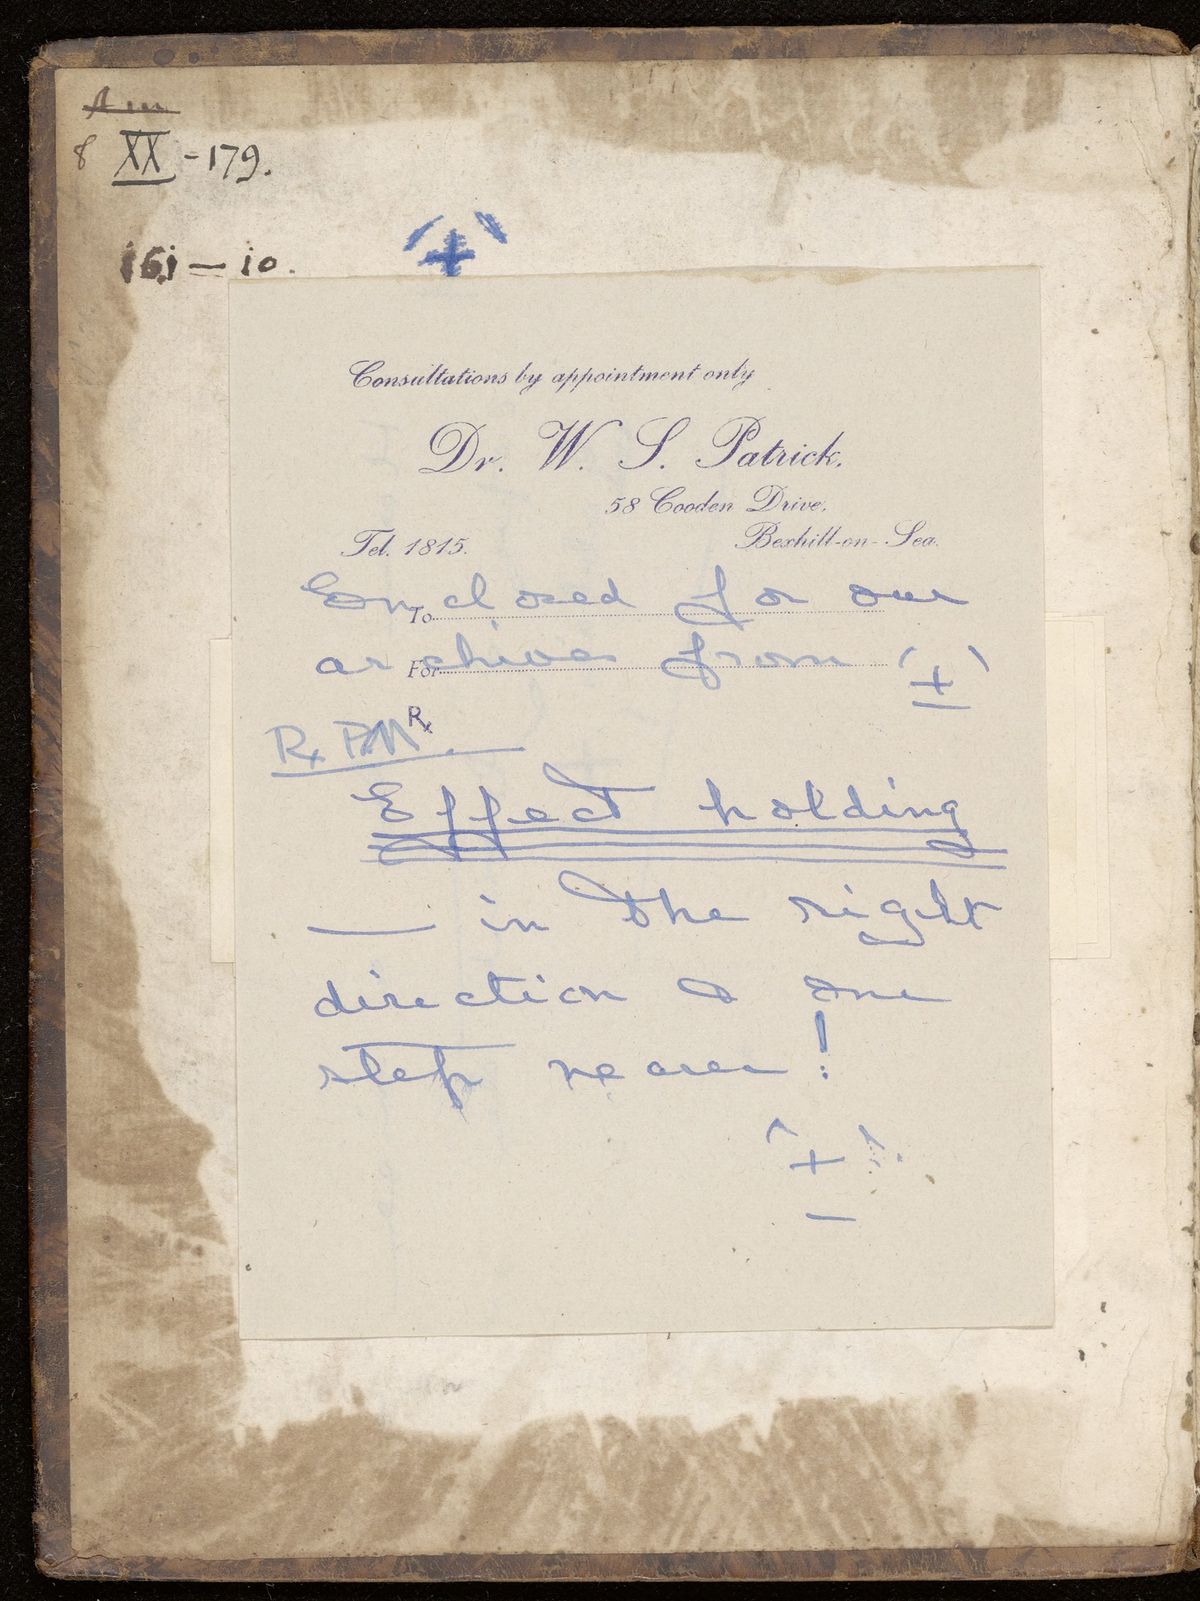 8 XX - 179.
161 — 10.
(+)
Consultations by appointment only
Dr. W. S. Patrick.
58 Cooden Drive,
Tel. 1815. Bexhill-on-Sea.
To
Enclosed for our
For
archives from (+)
Rx
Rx PM.
Effect holding
— in the right
direction & one
step nearer!
(+).